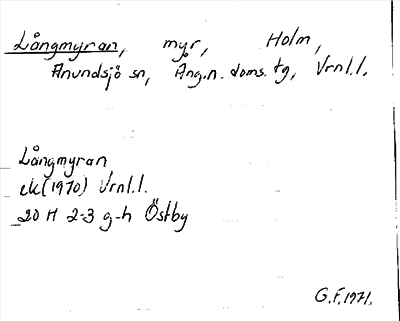 Långmyran, myr, Holm,
Anundsjö sn, Ång.n. doms. tg, Vrnl.l.
Långmyran
ek (1970) Vrnl.l.
20 H 2-3 g-h Östby
G.F. 1971.